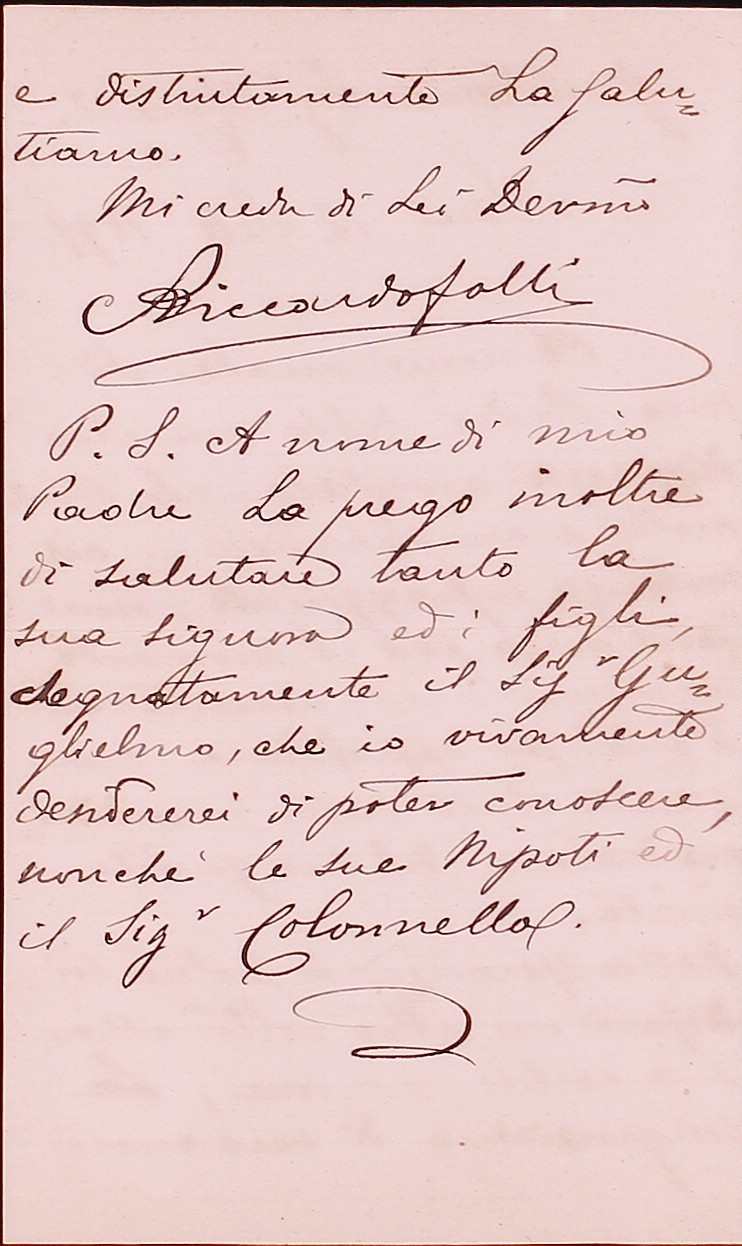 e distintamente La salu=
tiamo.
Mi creda di Lei Devmo
Riccardo folli
P. S. A nome di mio
Padre La prego inoltre
di salutare tanto la
sua signora ed i figli,
segnatamente il Sigr Gu=
glielmo, che io vivamente
desidererei di poter conoscere,
nonché le sue Nipoti ed
il Sigr Colonnello.